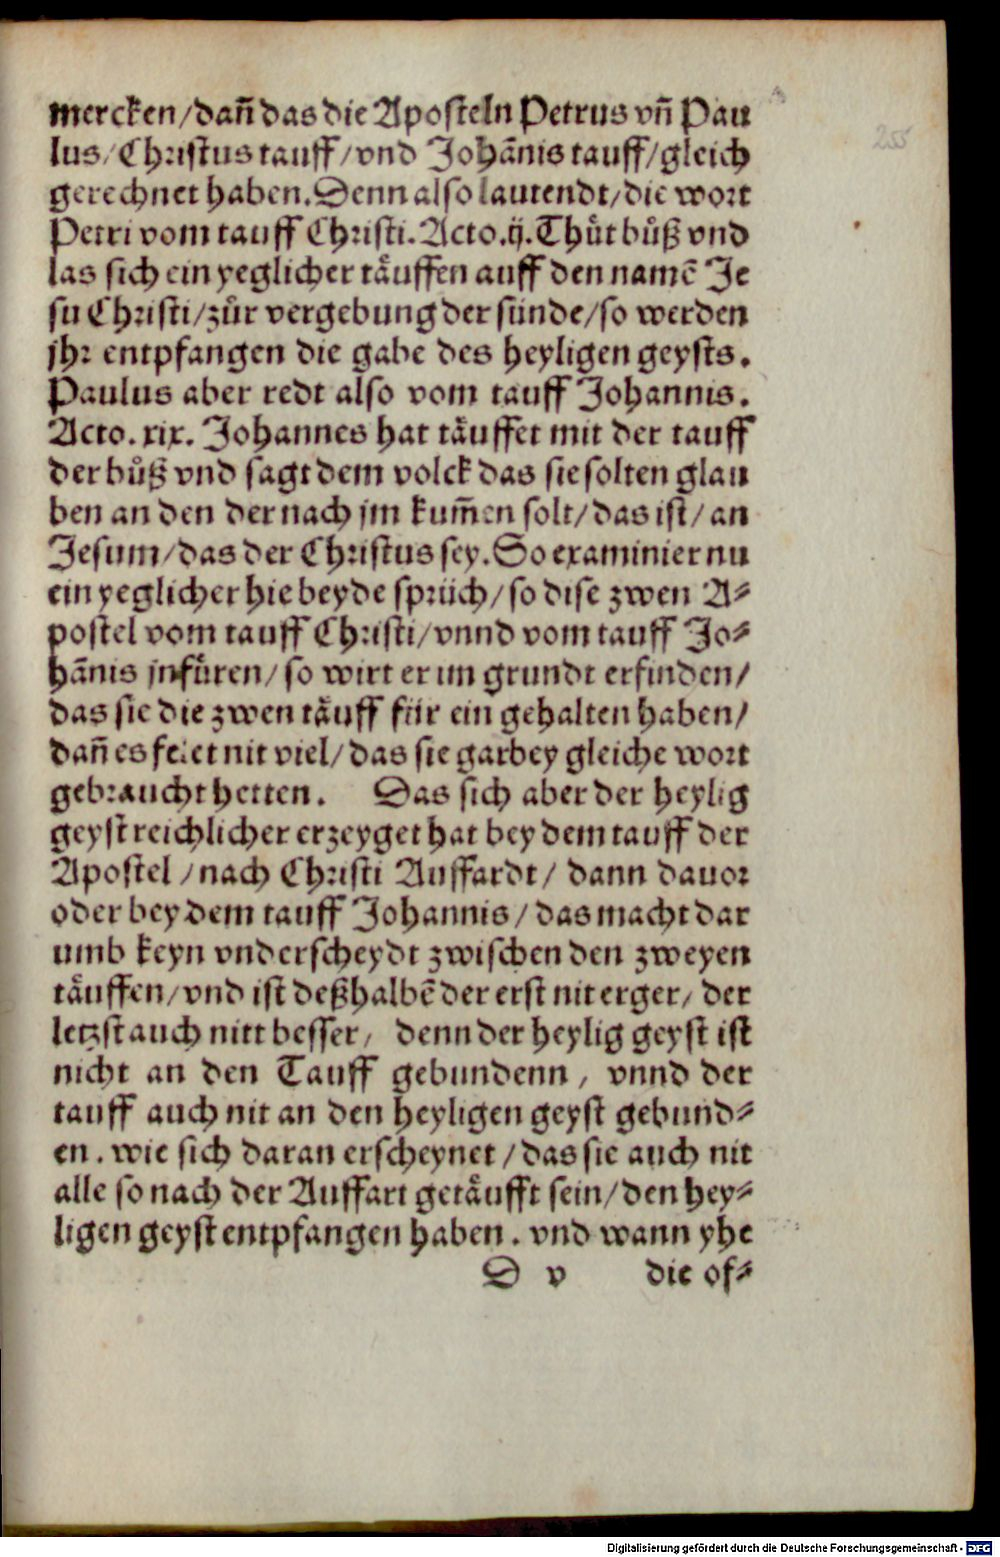 mercken/dañ das die Aposteln Petrus vñ Pau
lus/Christus tauff/vnd Johãnis tauff/gleich
gerechnet haben.Denn also lautendt/die wort
Petri vom tauff Christi.Acto.ij.Thůt bůß vnd
las sich ein yeglicher täuffen auff den namẽ Je
su Christi/zůr vergebung der sünde/so werden
jhr entpfangen die gabe des heyligen geysts.
Paulus aber redt also vom tauff Johannis.
Acto.xix. Johannes hat täuffet mit der tauff
der bůß vnd sagt dem volck das sie solten glau
ben an den der nach jm kum̃en solt/das ist/an
Jesum/das der Christus sey.So examinier nu
ein yeglicher hie beyde sprüch/so dise zwen A-
postel vom tauff Christi/vnnd vom tauff Jo-
hãnis jnfüren/so wirt er im grundt erfinden/
das sie die zwen täuff für ein gehalten haben/
dañ es felet nit viel/das sie gar bey gleiche wort
gebraucht hetten. Das sich aber der heylig
geyst reichlicher erzeyget hat bey dem tauff der
Apostel/nach Christi Auffardt/ dann dauor
oder bey dem tauff Johannis/das macht dar
umb keyn vnderscheydt zwischen den zweyen
täuffen/vnd ist deßhalbẽ der erst nit erger/ der
letzst auch nitt besser/ denn der heylig geyst ist
nicht an den Tauff gebundenn/ vnnd der
tauff auch nit an den heyligen geyst gebund-
en. wie sich daran erscheynet/das sie auch nit
alle so nach der Auffart getäufft sein/den hey-
ligen geyst entpfangen haben. vnd wann yhe
D v die of-
255
Digitalisierung gefördert durch die Deutsche Forschungsgemeinschaft - DFG